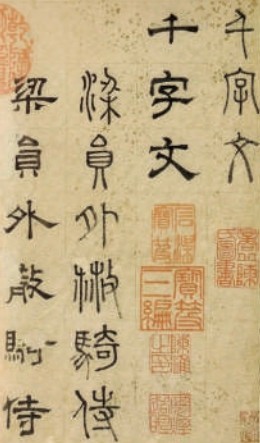 千字文
千字文
寶笈三編
梁員外散騎侍
梁員外散騎侍